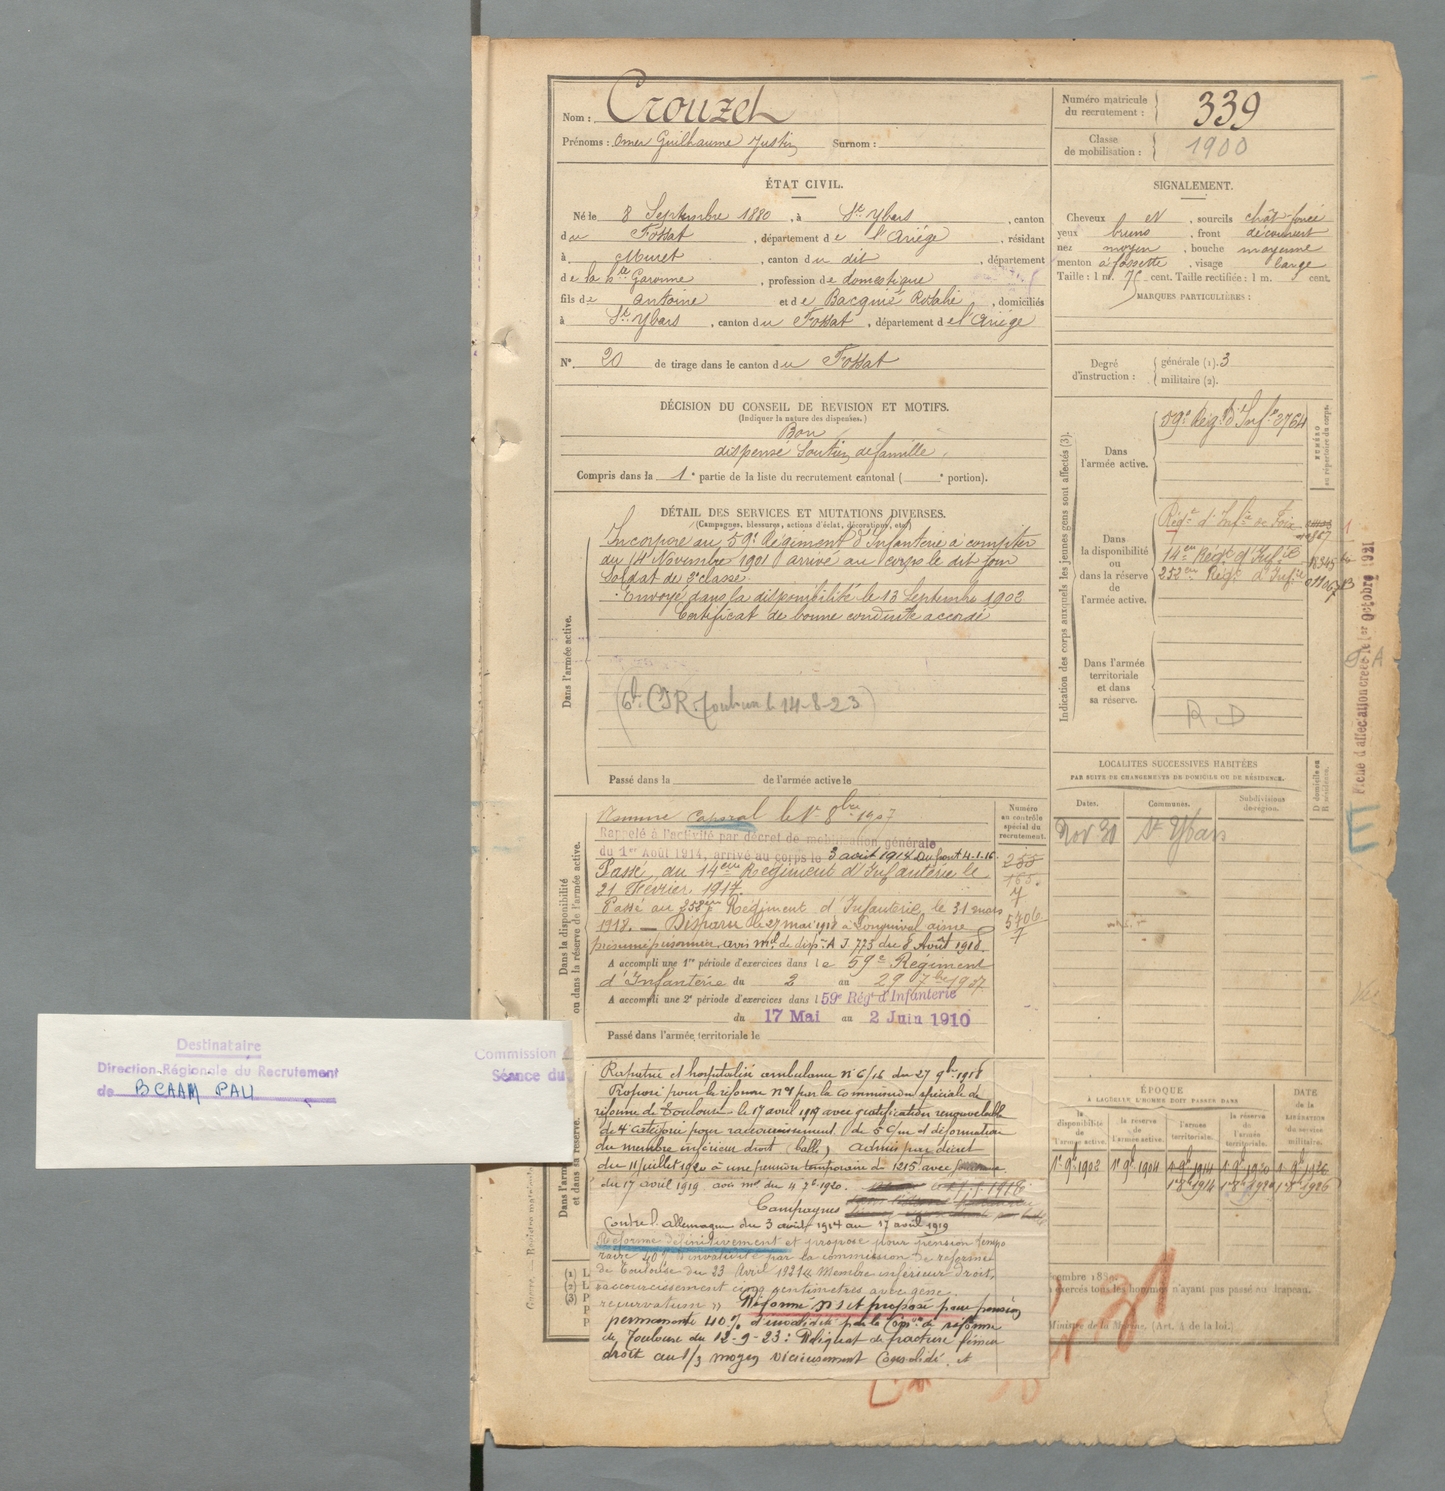 Nom : Crouzet
Prénoms : Omer Guilhaume Justin Surnom :
Numéro matricule du recrutement : 339
Classe de mobilisation : 1900
ÉTAT CIVIL.
Né le 8 Septembre 1880, à St Ybars, canton
du Fossat, département de l'Ariége, résidant
à Muret, canton du dit, département
de la hte Garonne, profession de domestique
fils de Antoine et de Bacquié Rosalie, domiciliés
à St Ybars, canton du Fossat, département de l'Ariége
N° 20 de tirage dans le canton du Fossat
SIGNALEMENT.
Cheveux N, sourcils chât-foncé
yeux bruns, front découvert
nez moyen, bouche moyenne
menton à fossette, visage large
Taille : 1 m. 75 cent. Taille rectifiée : 1 m. cent.
MARQUES PARTICULIÈRES :
Degré d'instruction : générale (1). 3
militaire (2).
DÉCISION DU CONSEIL DE REVISION ET MOTIFS.
(Indiquer la nature des dispenses.)
Bon
dispensé Soutien de famille.
Compris dans la 1e partie de la liste du recrutement cantonal ( e portion).
DÉTAIL DES SERVICES ET MUTATIONS DIVERSES.
(Campagnes, blessures, actions d'éclat, décorations, etc.)
Dans l'armée active.
Incorporé au 59e Régiment d'Infanterie à compter
du 14 Novembre 1901 arrivé au corps le dit jour
Soldat de 2e classe.
Envoyé dans la disponibilité le 13 Septembre 1902
Certificat de bonne conduite accordé
14-8-23
Passé dans la de l'armée active le
Indication des corps auxquels les jeunes gens sont affectés (3).
NUMÉRO au répertoire du corps.
Dans l'armée active.
59e Régt d'Infie 2764
Dans la disponibilité ou dans la réserve de l'armée active.
Régt d'Infie de Foix
14eme Régt d'Infie
252eme Régt d'Infie
Dans l'armée territoriale et dans sa réserve.
R.D
Fiche d'affectation créée le 1er Octobre 1921
LOCALITES SUCCESSIVES HABITÉES
PAR SUITE DE CHANGEMENTS DE DOMICILE OU DE RÉSIDENCE.
D domicile ou R résidence.
Dates. Communes. Subdivisions de région.
Nov. 30 St Ybars
E
Dans la disponibilité ou dans la réserve de l'armée active.
Numéro au contrôle spécial du recrutement.
Nommé caporal le 1r 8bre 1907
Rappelé à l'activité par décret de mobilisation générale
du 1er Août 1914, arrivé au corps le 3 août 1914 Du front 4.1.16
Passé, au 14eme Régiment d'Infanterie le
21 Février 1917.
Passé au 252eme Régiment d'Infanterie, le 31 mars
1918. — Disparu le 27 mai 1918 à Longueval aisne
présumé prisonnier. avis ml de disp. A J 773 du 8 Août 1918.
A accompli une 1re période d'exercices dans le 59e Régiment
d'Infanterie du 2 au 29 7bre 1907.
A accompli une 2e période d'exercices dans l 59e Régt d'Infanterie
du 17 Mai au 2 Juin 1910
Passé dans l'armée territoriale le
Destinataire
Direction Régionale du Recrutement
de BCAAM PAU
Commission
Séance du
Rapatrié et hospitalisé ambulance n° 6/16 du 27 9bre 1918
Proposé pour la réforme n°1 par la commission spéciale de
réforme de Toulouse le 17 avril 1919 avec gratification renouvelable
de 4e catégorie pour raccourcissement de 5 c/m et déformation
du membre inférieur droit (balle) admis par décret
du 11 juillet 1920 à une pension temporaire de 1215 avec jouissance
du 17 avril 1919 avis ml du 4 7bre 1920.
Campagnes
Contre l'allemagne du 3 août 1914 au 17 avril 1919
Réformé définitivement et proposé pour pension tempo
raire 40% d'invalidité par la commission de réforme
de Toulouse du 23 Avril 1921 « Membre inférieur droit,
raccourcissement cinq centimètres avec
recurvatum » Réformé N°1 et proposé pour pension
permanente 40% d'invalidité par la Con de réforme
de Toulouse du 12-9-23 : Reliquat de fracture fémur
droit au 1/3 moyen vicieusement consolidé. et
ÉPOQUE
À LAQUELLE L'HOMME DOIT PASSER DANS
la disponibilité de l'armée active. la réserve de l'armée active. l'armée territoriale. la réserve de l'armée territoriale.
DATE de la LIBÉRATION du service militaire.
1r 9bre 1902 1r 9bre 1904 1r 9bre 1914 1r 9bre 1920 1r 9bre 1926
1r 8bre 1914 1r 8bre 1920 1r 8bre 1926
exercés tous les hommes n'ayant pas passé au drapeau.
Ministre de la Marine. (Art. 4 de la loi.)